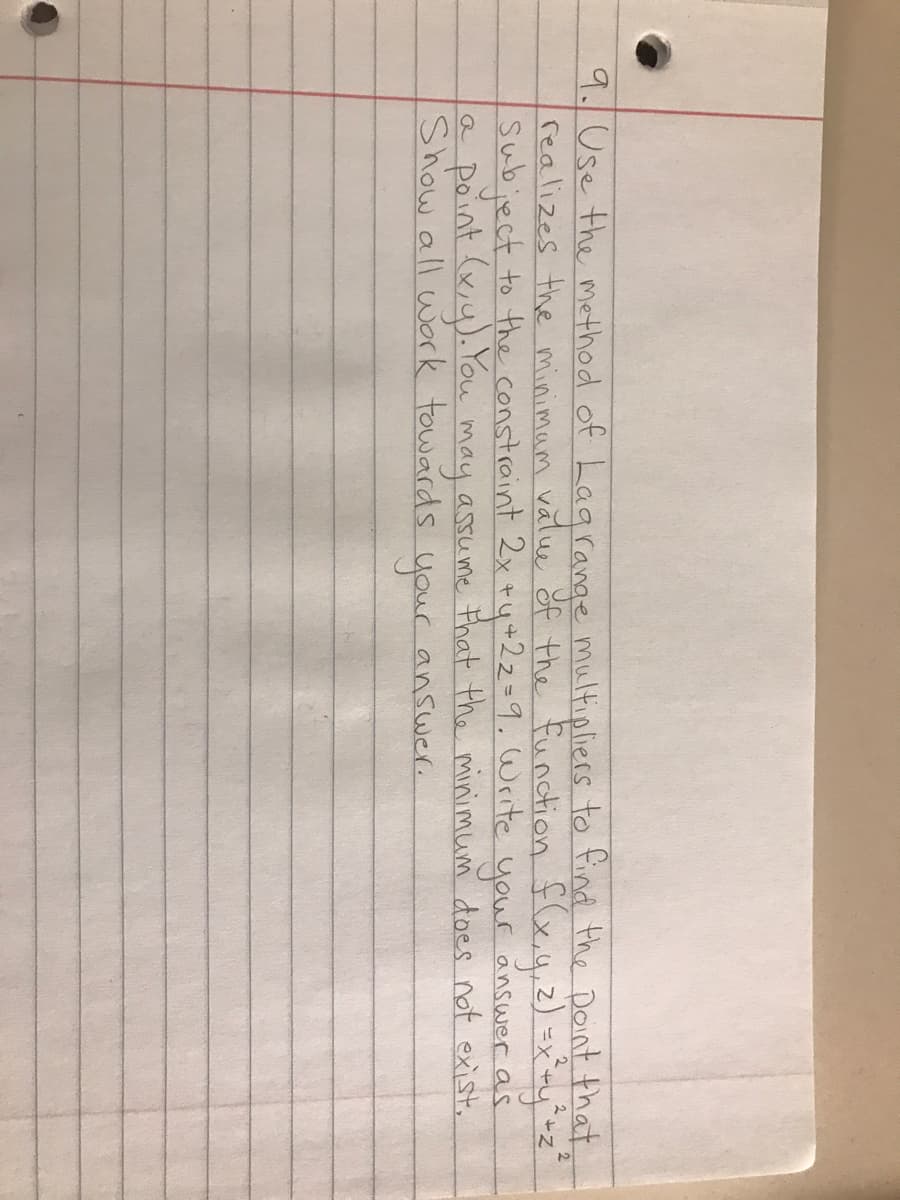 9. Use the method of Lagrange multipliers to find the point that
realizes the minimum value of the function f(x,y,z)=x²+y²+z²
subject to the constraint 2x+y+2z=9. Write your answer as
a point (x,y). You may assume that the minimum does not exist.
Show all work towards your answer.